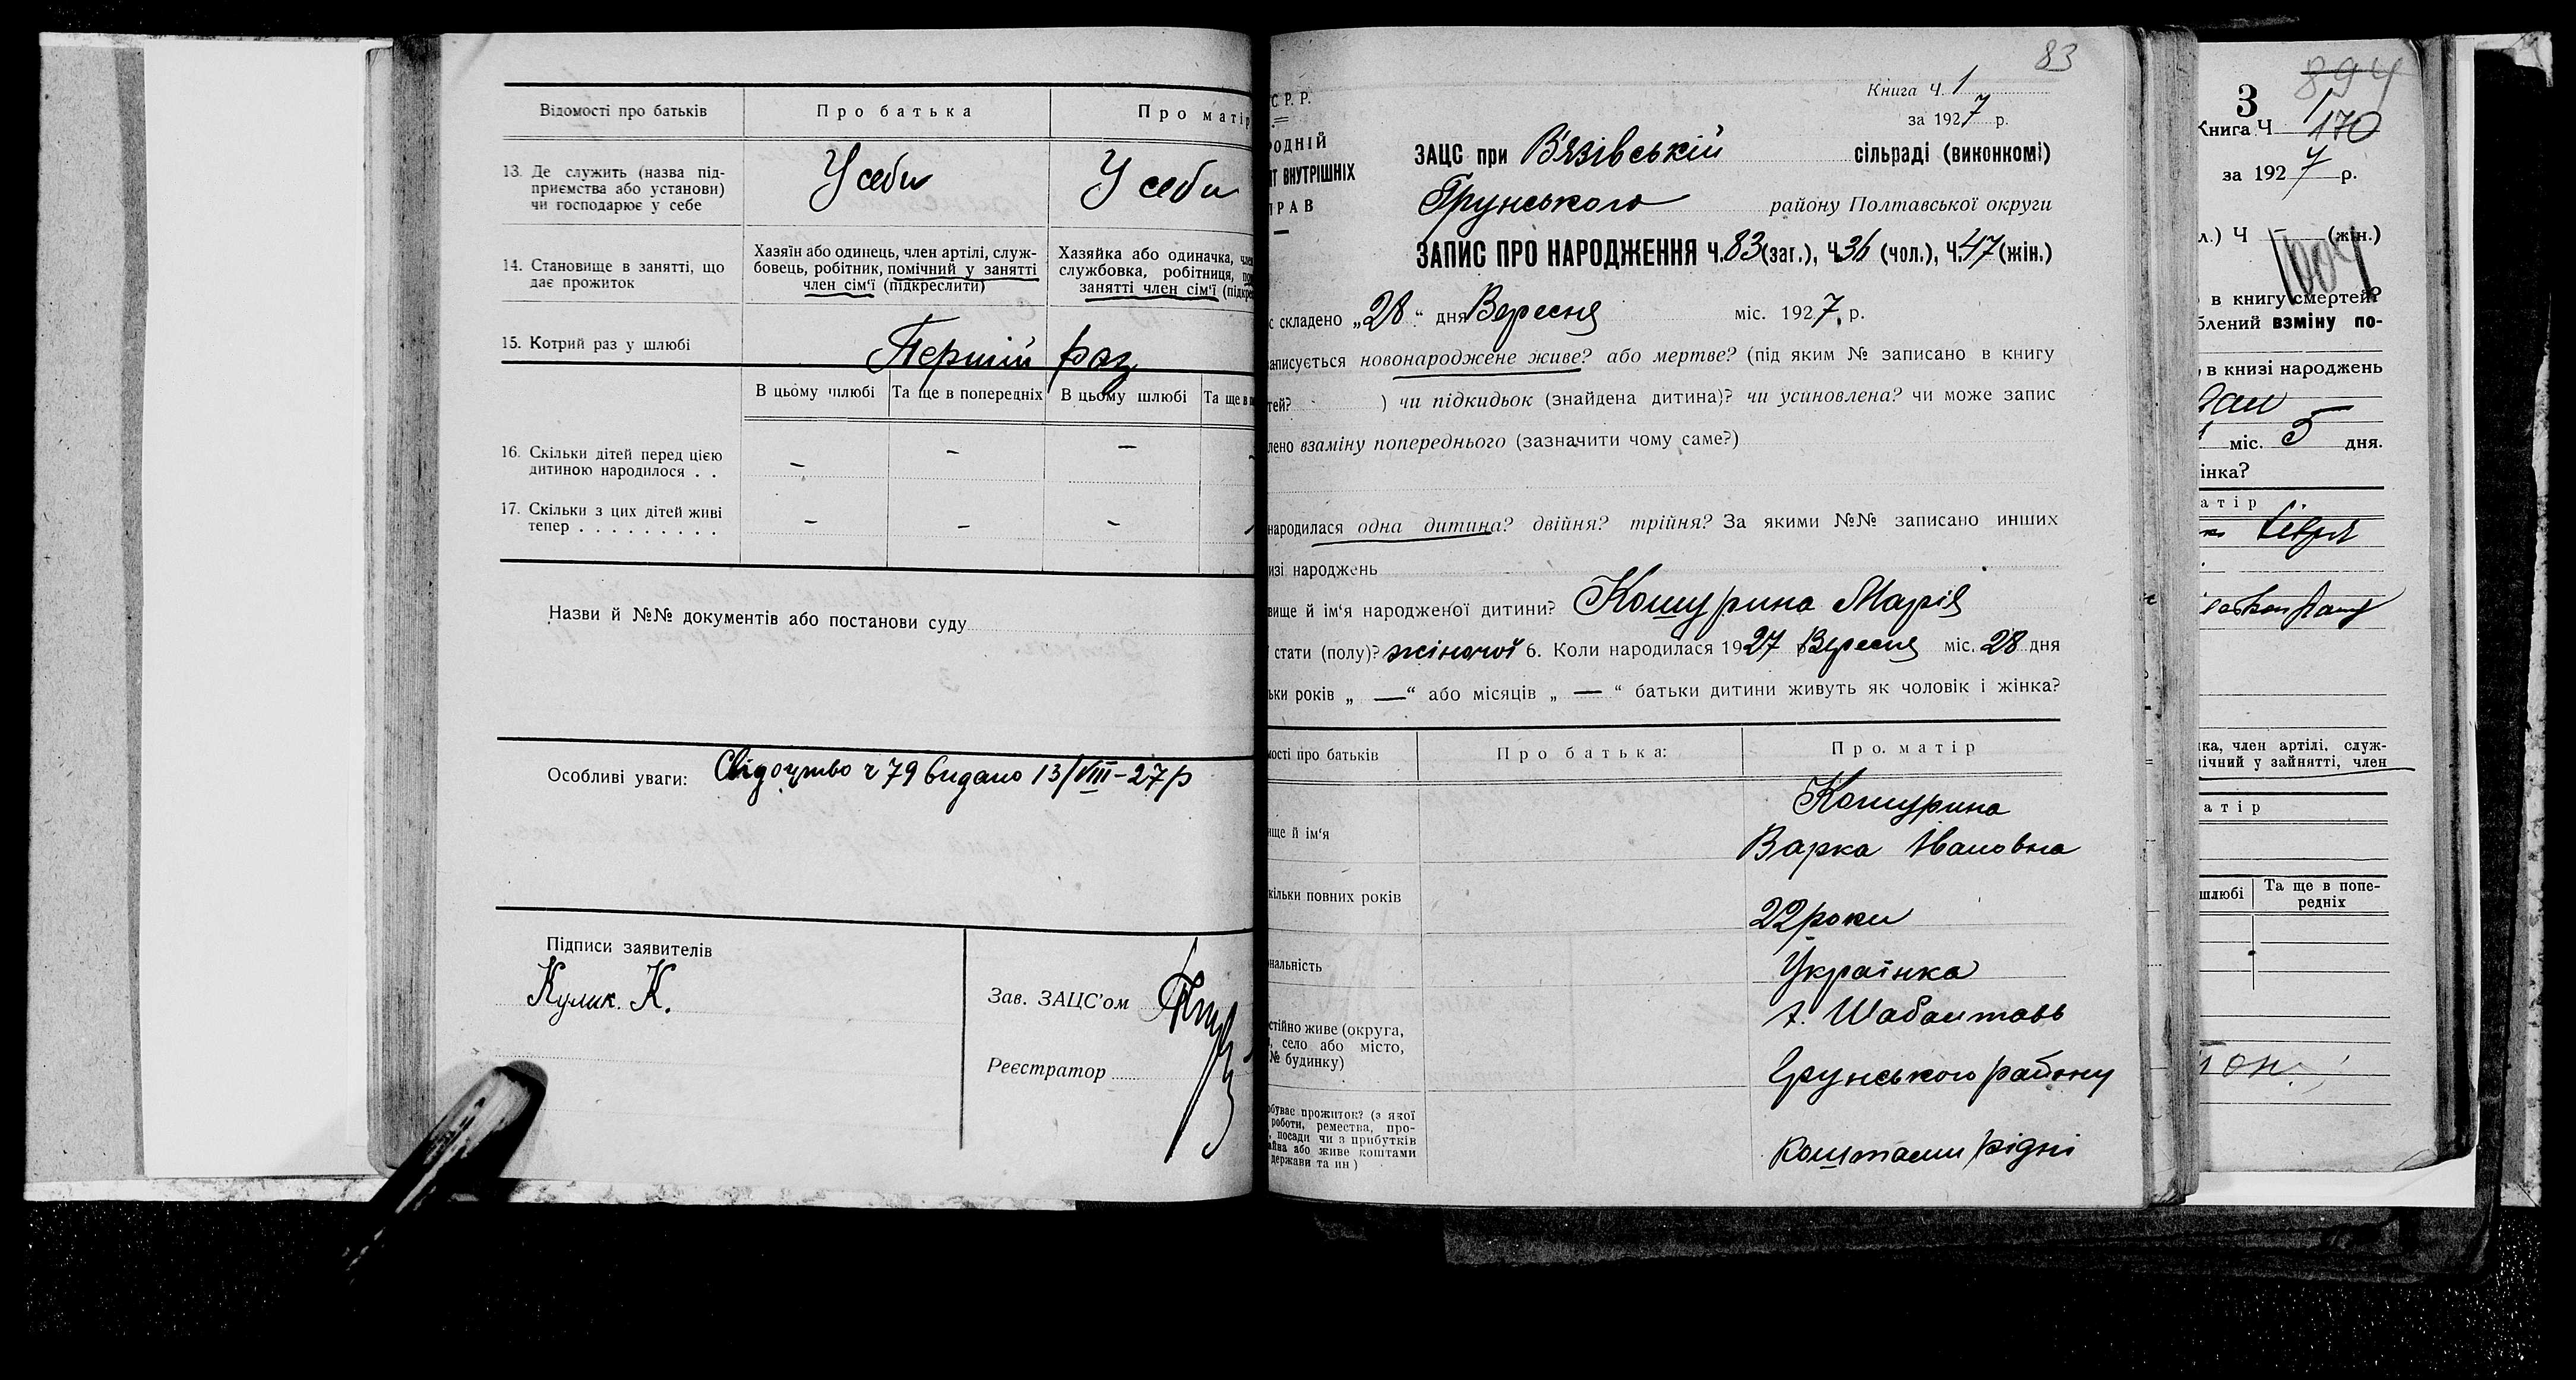 Відомості про батьків
Про батька
Про матір
13. Де служить (назва під-
приємства або установи)
чи господарює у себе
У себи
У себи
14. Становище в занятті, що
дає прожиток
Хазяїн або одинець, член артілі, служ-
бовець, робітник, помічний у занятті
член сім'ї (підкреслити)
Хазяйка або одиначка, член
службовка, робітниця,
занятті член сім'ї
15. Котрий раз у шлюбі
Перший раз
В цьому шлюбі
Та ще в попередніх
В цьому шлюбі
Та ще в
16. Скільки дітей перед цією
дитиною народилося . .
— — —
17. Скільки з цих дітей живі
тепер . . . . . . . . .
— — —
Назви й №№ документів або постанови суду
Особливі уваги: Свідоцтво ч 79 видано 13/VIII-27р
Підписи заявителів
Кулик. К.
Зав. ЗАЦС'ом
Реєстратор
83
С Р. Р.
РОДНІЙ
ВНУТРІШНІХ
РАВ
Книга Ч. 1
за 1927 р.
ЗАЦС при Вязівській сільраді (виконкомі)
Грунського району Полтавської округи
ЗАПИС ПРО НАРОДЖЕННЯ Ч. 83 (заг.), Ч. 36 (чол.), Ч. 47 (жін.)
с складено „28" дня Вересня міс. 1927, р.
аписується новонароджене живе? або мертве? (під яким № записано в книгу
тей? ) чи підкидьок (знайдена дитина)? чи усиновлена? чи може запис
лено взаміну попереднього (зазначити чому саме?)
народилася одна дитина? двійня? трійня? За якими №№ записано инших
изі народжень
вище й ім'я народженої дитини? Кошурина Марія
стати (полу)? жіночої 6. Коли народилася 1927 р Вересня міс. 28 дня
ьки років „ — " або місяців „ — " батьки дитини живуть як чоловік і жінка?
мості про батьків
Про батька:
Про. матір
ище й ім'я
Кошурина
Варка Івановна
кільки повних років
22 роки
нальність
Українка
стійно живе (округа,
село або місто,
№ будинку)
х.
Грунського району
обуває прожиток? (з якої
роботи, ремества, про-
посади чи з прибутків
айна або живе коштами
держави та ин)
коштами рідні
894
3
Книга Ч 1
170
за 1927 р.
л.) Ч — (жін.)
в книгу смертей?
блений взміну по-
, в книзі народжень
міс. 5 дня.
інка?
атір
ка, член артілі, служ-
ічний у зайнятті, член
атір
шлюбі
Та ще в попе-
редніх